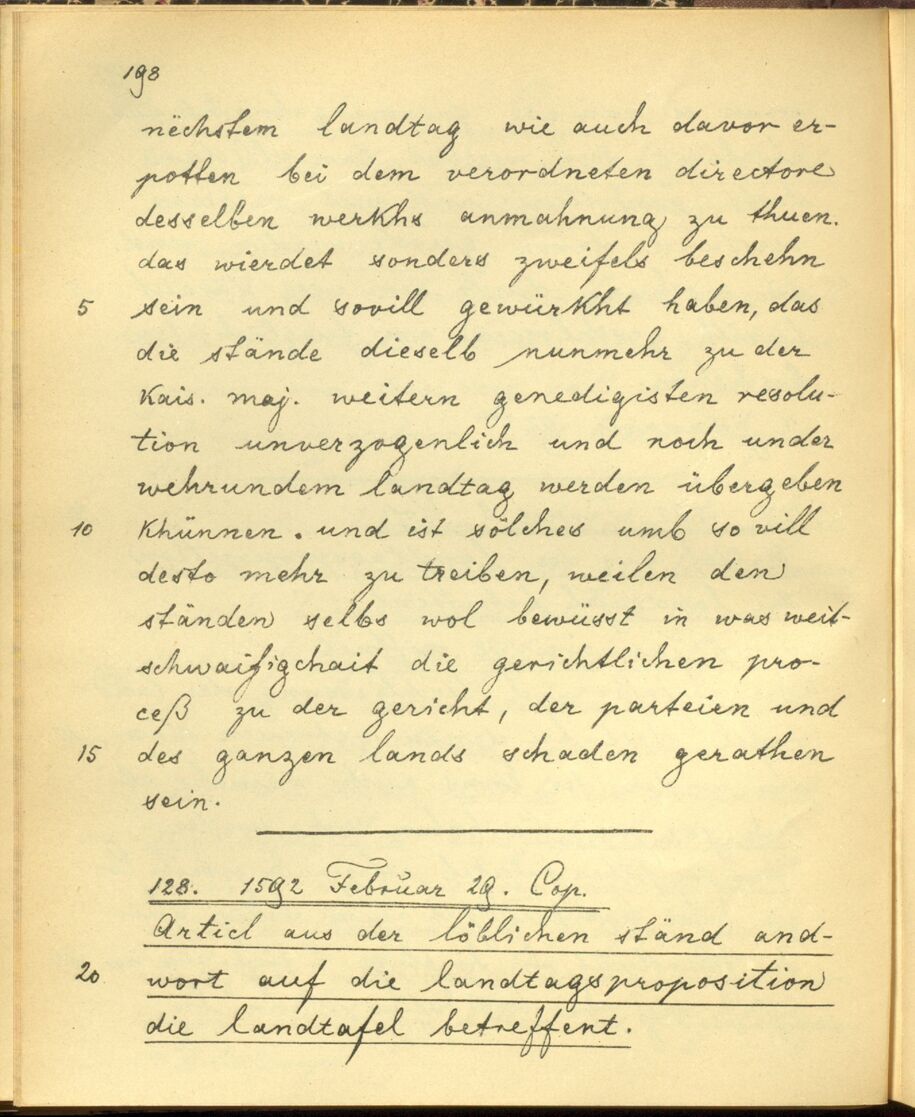 198
nëchstem landtag wie auch davor er-
potten bei dem verordneten directore
desselben werkhs anmahnung zu thuen.
das wierdet sonders zweifels beschehn
5 sein und sovill gewürkht haben, das
die stände dieselb nunmehr zu der
kais. maj. weitern genedigisten resolu-
tion unverzogenlich und noch under
wehrundem landtag werden übergeben
10 khünnen. und ist sölches umb so vill
desto mehr zu treiben, weilen den
ständen selbs wol bewüsst in was weit-
schwaifigchait die gerichtlichen pro-
ceß zu der gericht, der parteien und
15 des ganzen lands schaden gerathen
sein.
128. 1592 Februar 29. Cop.
Articl aus der löblichen ständ and-
20 wort auf die landtagsproposition
die landtafel betreffent.